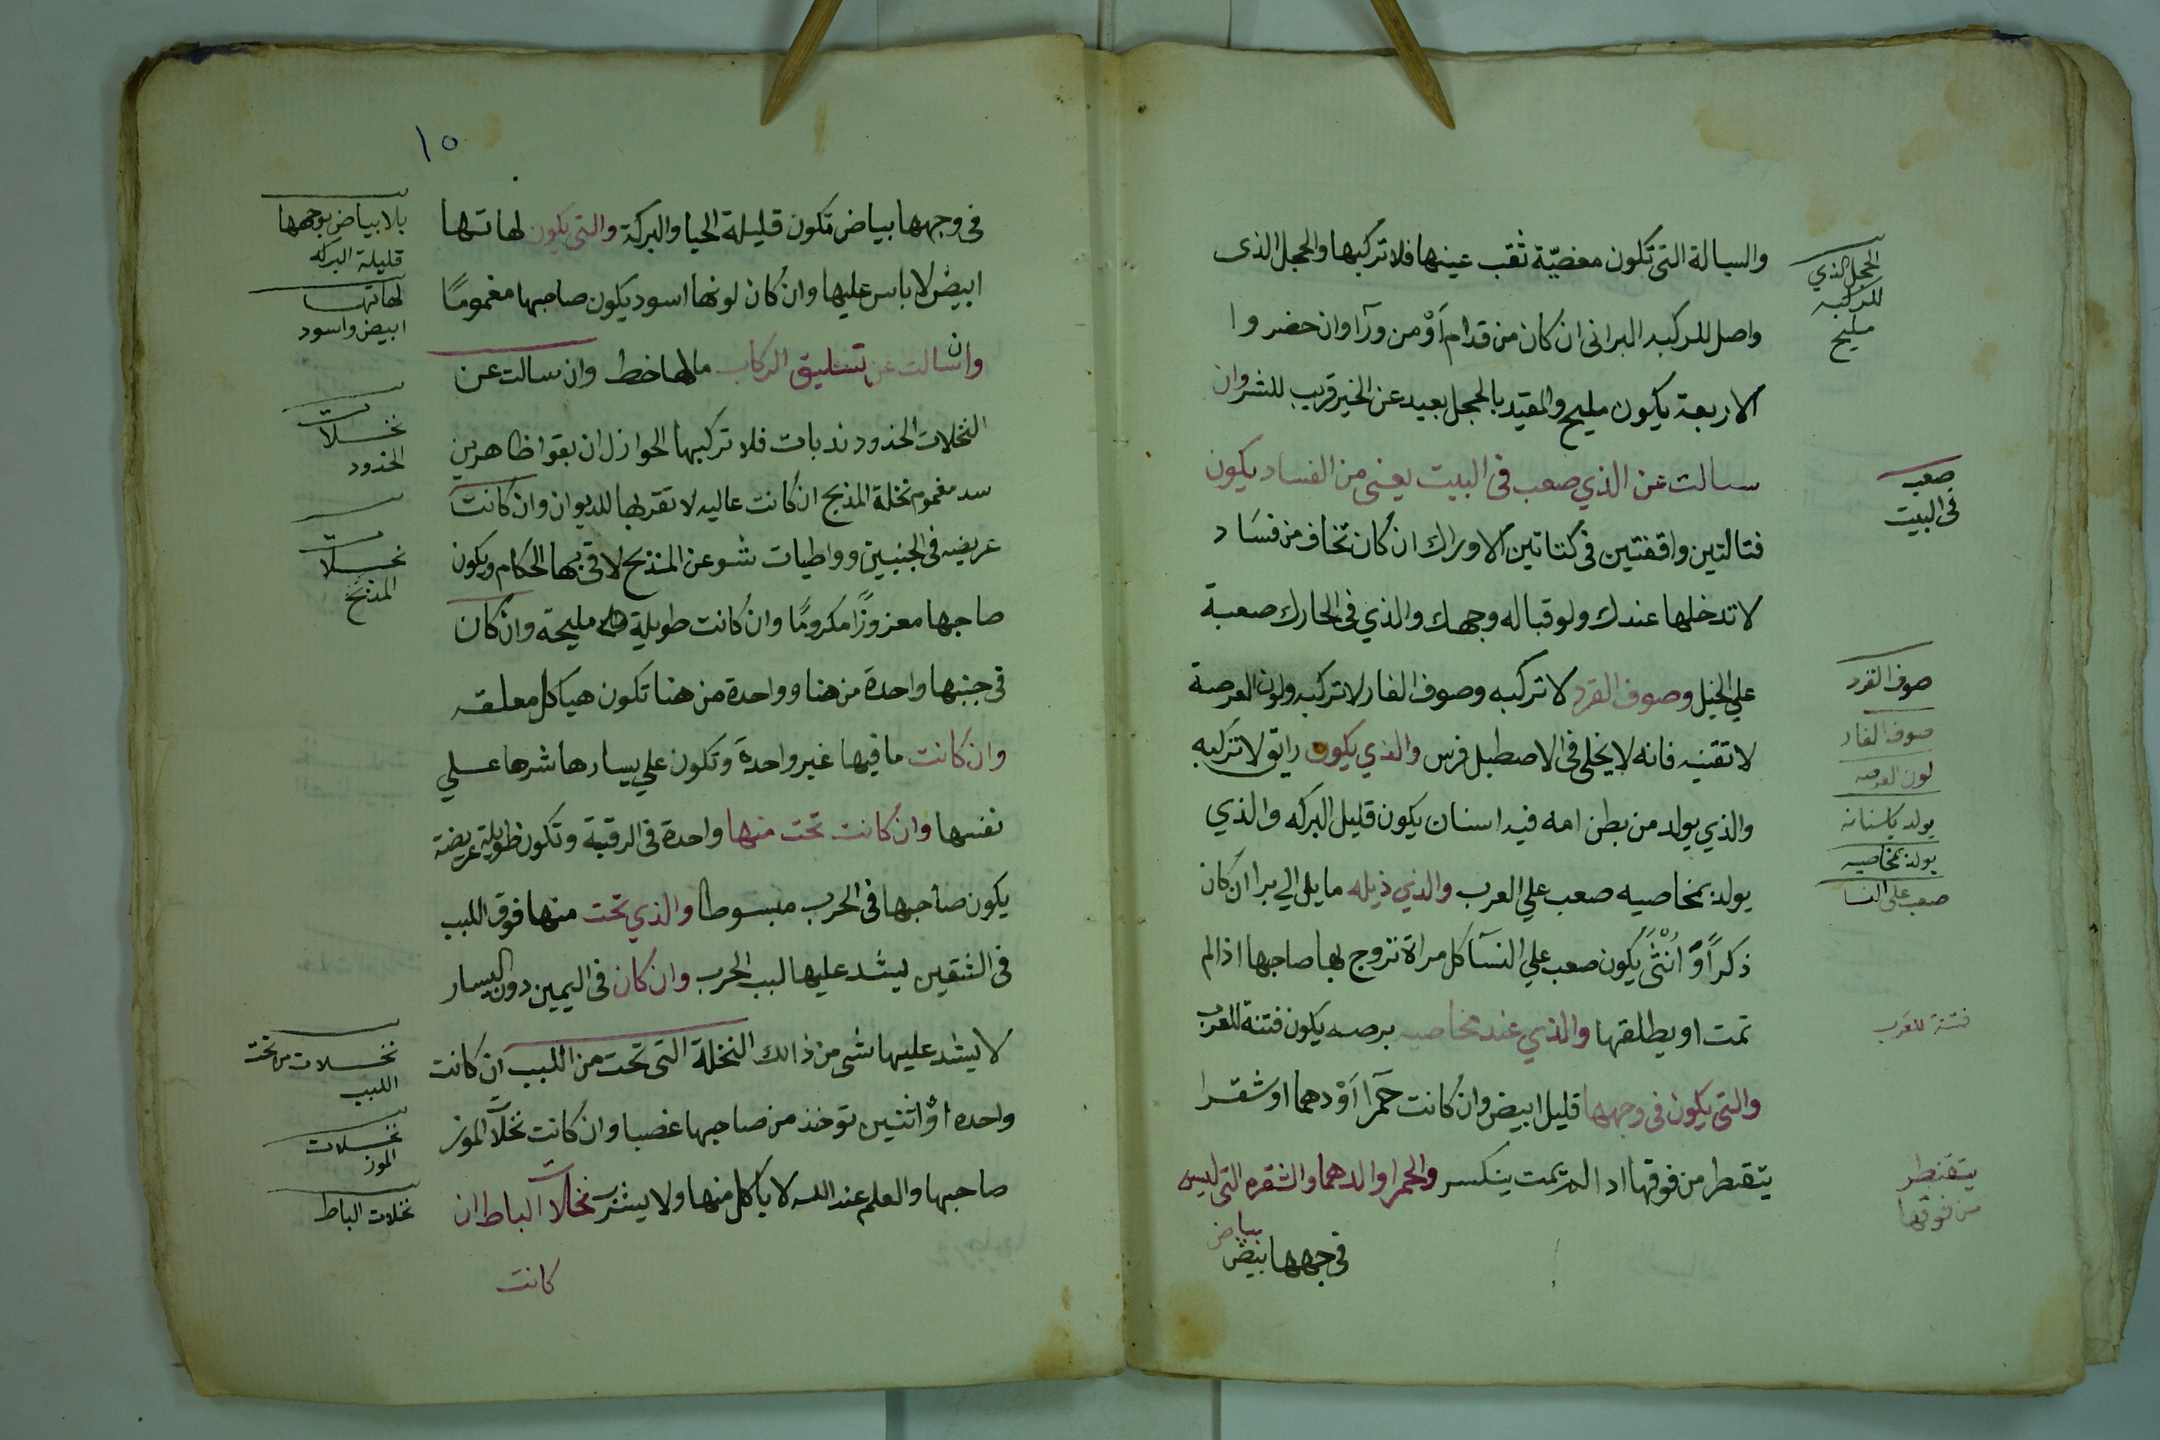 والسيالة التى تكون مغضيّة ثقب عينها فلا تركبها والحجل الذى
واصل للركبه البرانى ان كان من قدام أوْ من ورآ وان حضروا
الاربعة يكون مليح والمقيد بالحجل بعيد عن الخير قريب للشر وان
سالت عن الذي صعب فى البيت يعنى من الفساد يكون
فتالتين واقفتين فى كتاتين الاوراك ان كان تخاف من فسَاد
لا تدخلها عندك ولو قباله وجهك والذي فى الحارك صعبة
علي الخيل وصوف القرد لا تركبه وصوف الفار لا تركبه ولون العرصة
لا تقنيه فانه لا يخلى فى الاصطبل فرس والذي يكون رايق لا تركبه
والذي يولد من بطن امه فيه اسنان يكون قليل البركه والذي
يولد بمخاصيه صعب علي العرب والذي ذيله مايل الي برا ان كان
ذكراً أوْ اُنْثَى يكون صعب علي النسآ كل مراة تزوج بها صاحبها اذا لم
تمت او يطلقها والذي عند مخاصيه برصه يكون فتنة للعرب
والتى يكون فى وجهها قليل ابيض وان كانت حَمرا أوْ دهما او شقرا
يتقنطر من فوقها اد الم تمت ينكسر والحمرا والدهما والشقره التى ليس
بياض
فى جهها بيض
الحجل الذي
للركبه
مليح
صعب
فى البيت
صوف القرد
صوف الفار
لون العرصه
يولد باسنانه
يولد بمخاصيه
صعب على النسا
فتنة للعَرب
يتقنطر
من فوقها
١٥
فى وجهها بياض تكون قليلة الحيا والبركة والتى يكون لهاتها
ابيض لا باس عليها وان كان لونها اسود يكون صاحبها مغمومًا
وان سالت عن تسليق الركاب مالها خط وان سالت عن
النخلات الخدود ندبات فلا تركبها الحوازل ان بقوا ظاهرين
سد مغموم نخلة المذبح ان كانت عاليه لا تقربها للديوان وان كانت
عريضه فى الجنبين وواطيات شو عن المذبح لاقى بها الحكام ويكون
صاحبها معزوزًا مكرومًا وان كانت طويلة مليحة وان كان
فى جنبها واحدة من هنا وواحدة من هنا تكون هياكل معلقه
وان كانت ما فيها غير واحدة وتكون علي يسارها شرها علي
نفسها وان كانت تحت منها واحدة فى الرقبة وتكون طويلة عريضة
يكون صاحبها فى الحرب مبسوطا والذي تحت منها فوق اللبب
فى الشقين ليشد عليها لبب الحرب وان كان فى اليمين دون اليسار
لا يشد عليها شى من ذالك النخلة التى تحت من اللبب ان كانت
واحده أوْ اثنين توخذ من صاحبها غصبا وان كانت نخلآت الموز
صاحبها والعلم عند الله لا ياكل منها ولا يشرب نخلآت الباط ان
كانت
بلا بياض بوجهها
قليلة البركه
لهاتها
ابيض واسود
نخلات
الخدود
نخلات
المذبح
نخلات من تحت
اللبب
نخلات
الموز
نخلات الباط